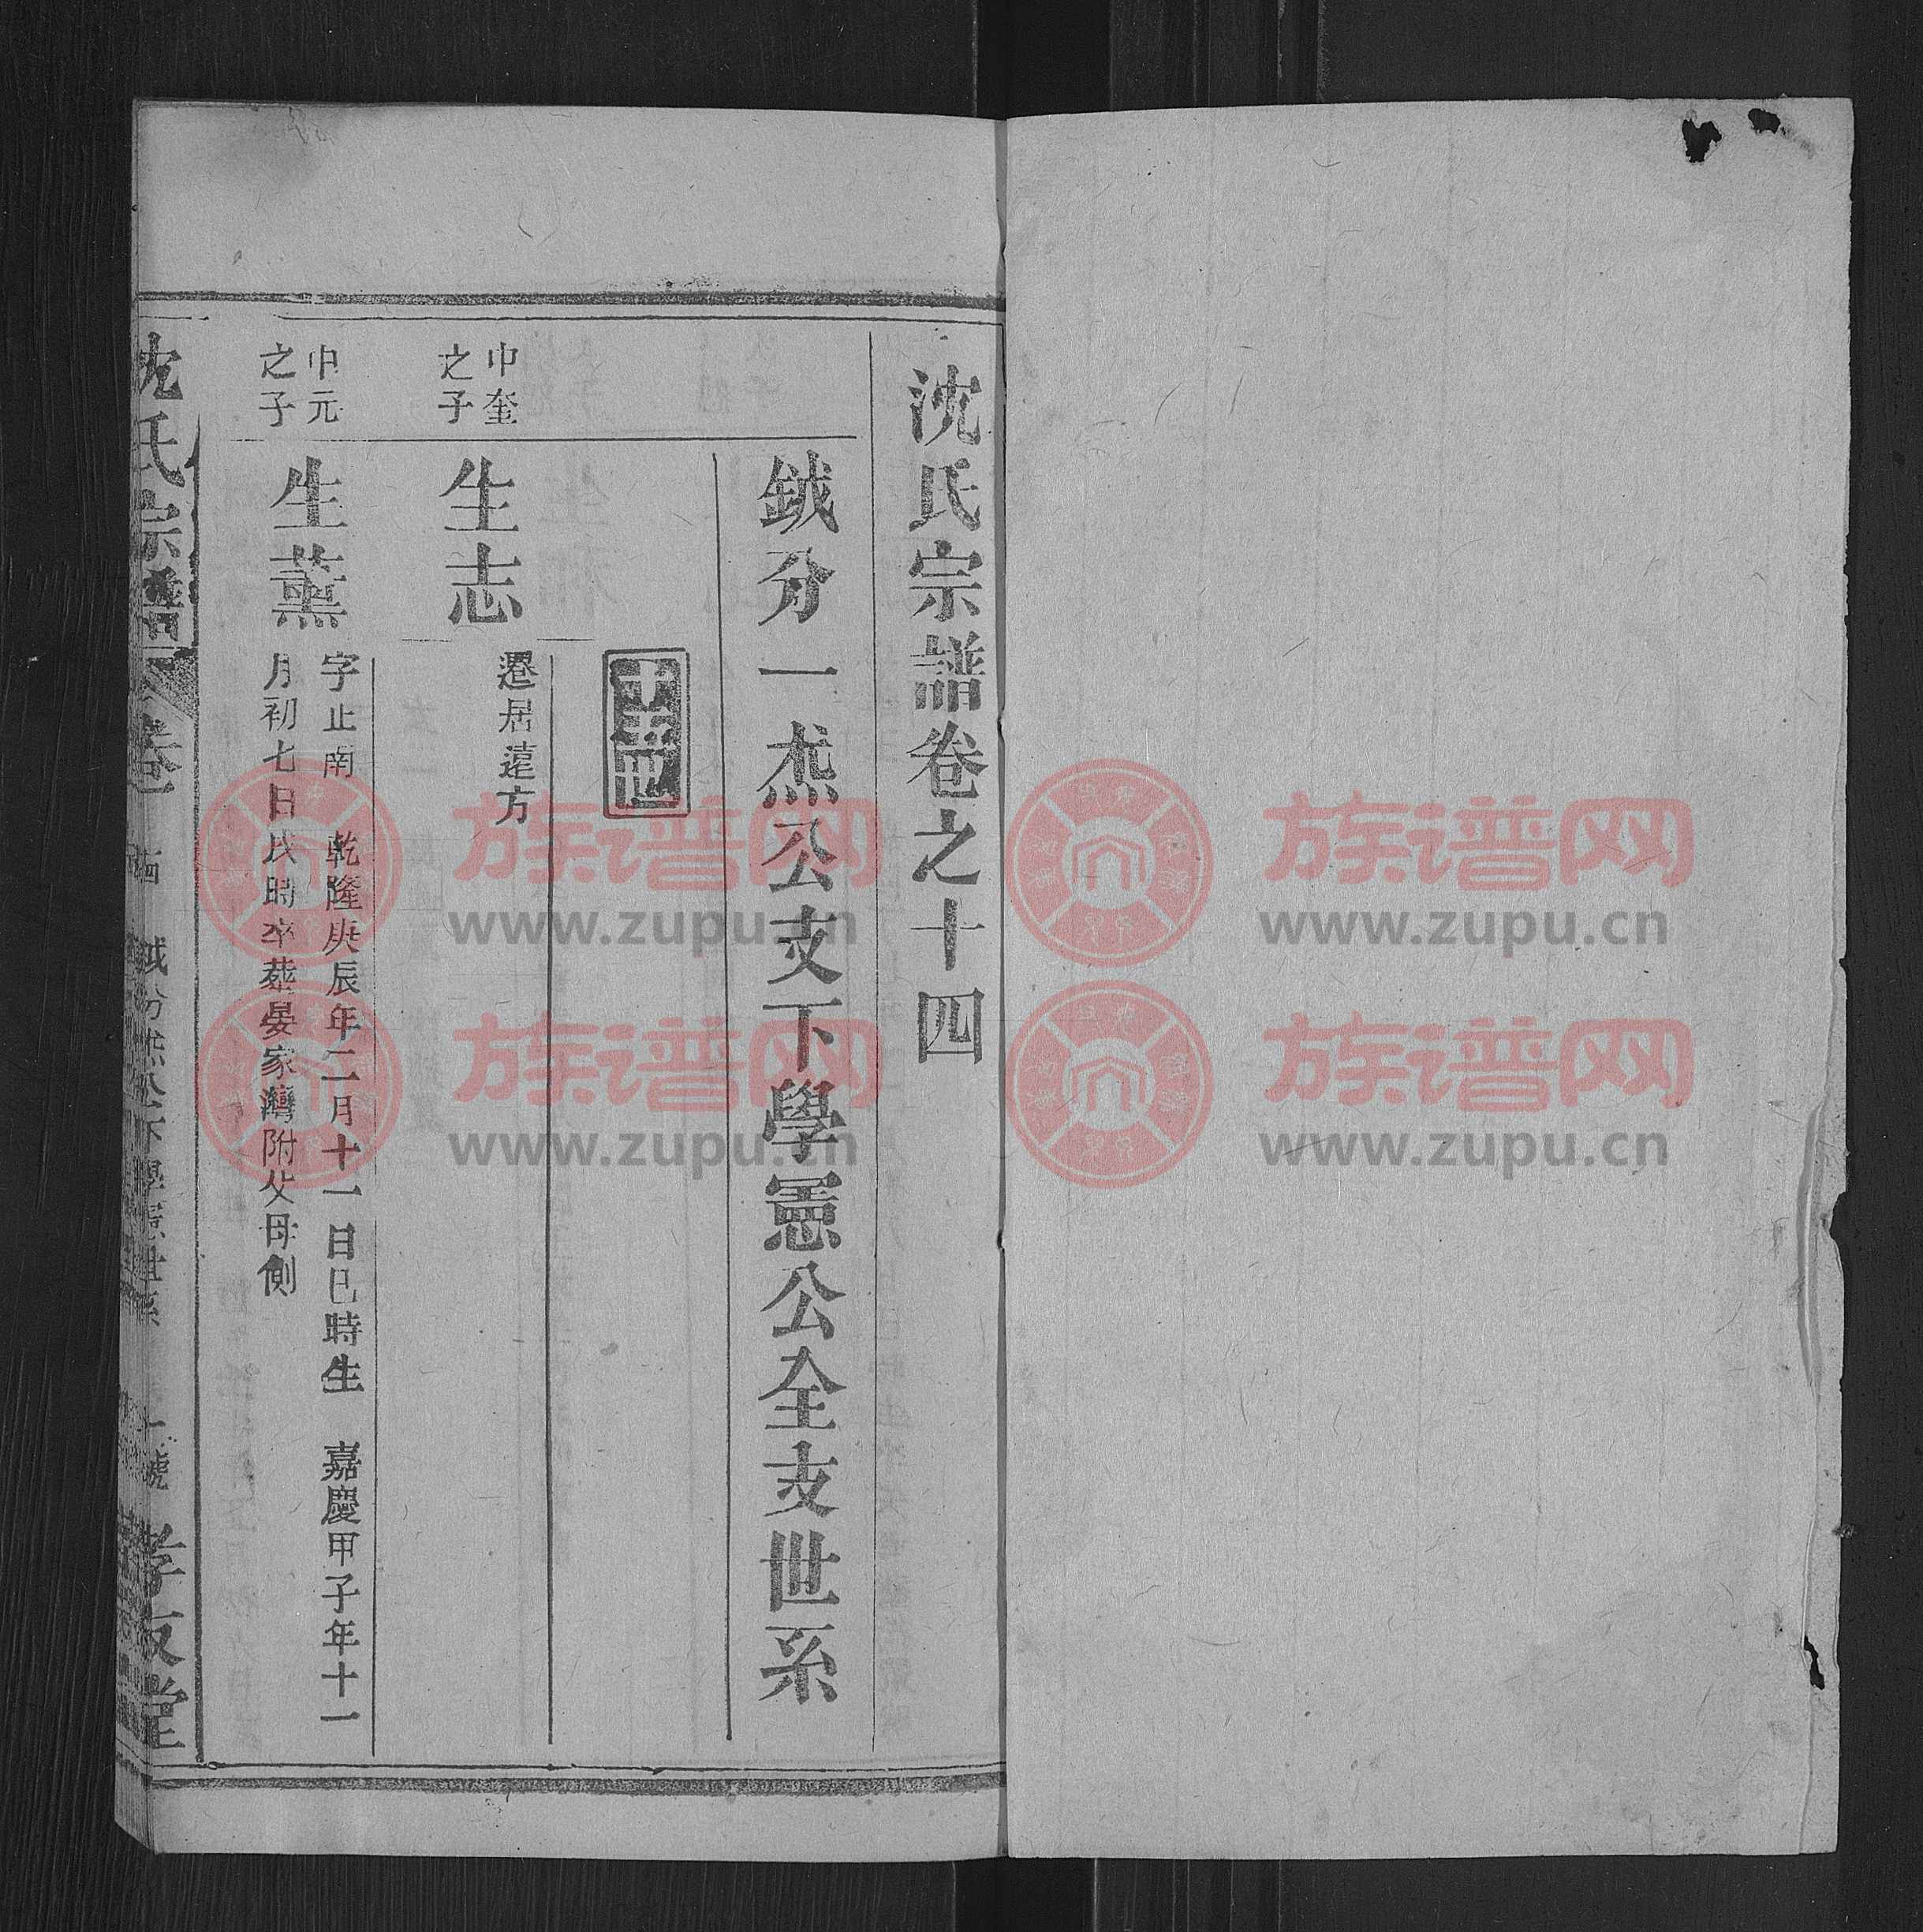 沈氏宗譜卷之十四
鉞分一烋公支下學憲公全支世系
十五世
巾奎
之子
生志
遷居遠方
巾元
之子
生薰
字止南 乾隆庚辰年二月十一日巳時生 嘉慶甲子年十一
月初七日戌時卒葬晏家灣附父母側
沈氏宗譜
卷
鉞分烋公下學憲世系
一號
孝友堂
族谱网
www.zupu.cn
族谱网
www.zupu.cn
族谱网
www.zupu.cn
族谱网
www.zupu.cn